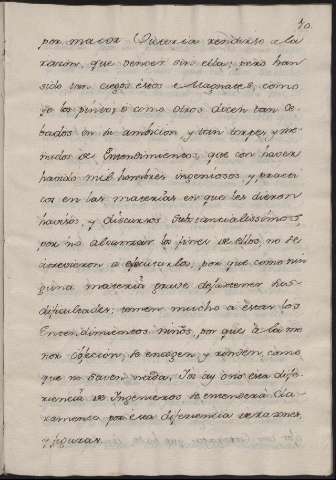 70.
por maior Quteria rendirse a la
razon, que vencer sin ella; pero han
sido tan ciegos estos Magnates, como
yo los pinto, o como otros dicen tan ce-
bados en su ambicion, y tan torpes, y me-
nudos de Entendimientos, que con haver
havido mil hombres ingeniosos, y practi-
cos en las materias en que les dieron
havisos, y discursos substancialissimos,
por no alcanzar los fines de ellos, no se
atrevieron a efectuarlos, por que como nin
guna materia grave dexa tener has
dificultades; temen mucho a estas los
Entendimientos niños, por que à la me
nor objecion, se encogen, y rinden, como
que no saven nada. Y si ay otro esta dife-
riencia de Ingenieros se entenderá cla-
ramente por esta diferiencia de razones,
y figuras.